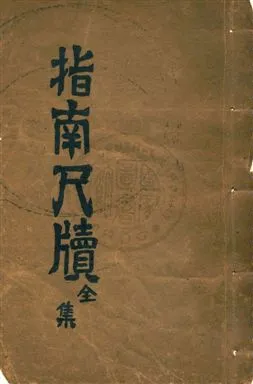 指南尺牘
全集